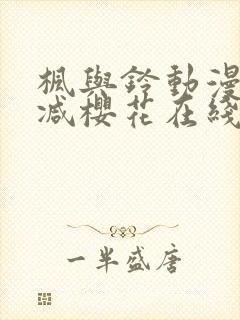 楓與鈴動漫
减櫻花在綫
一半盛唐